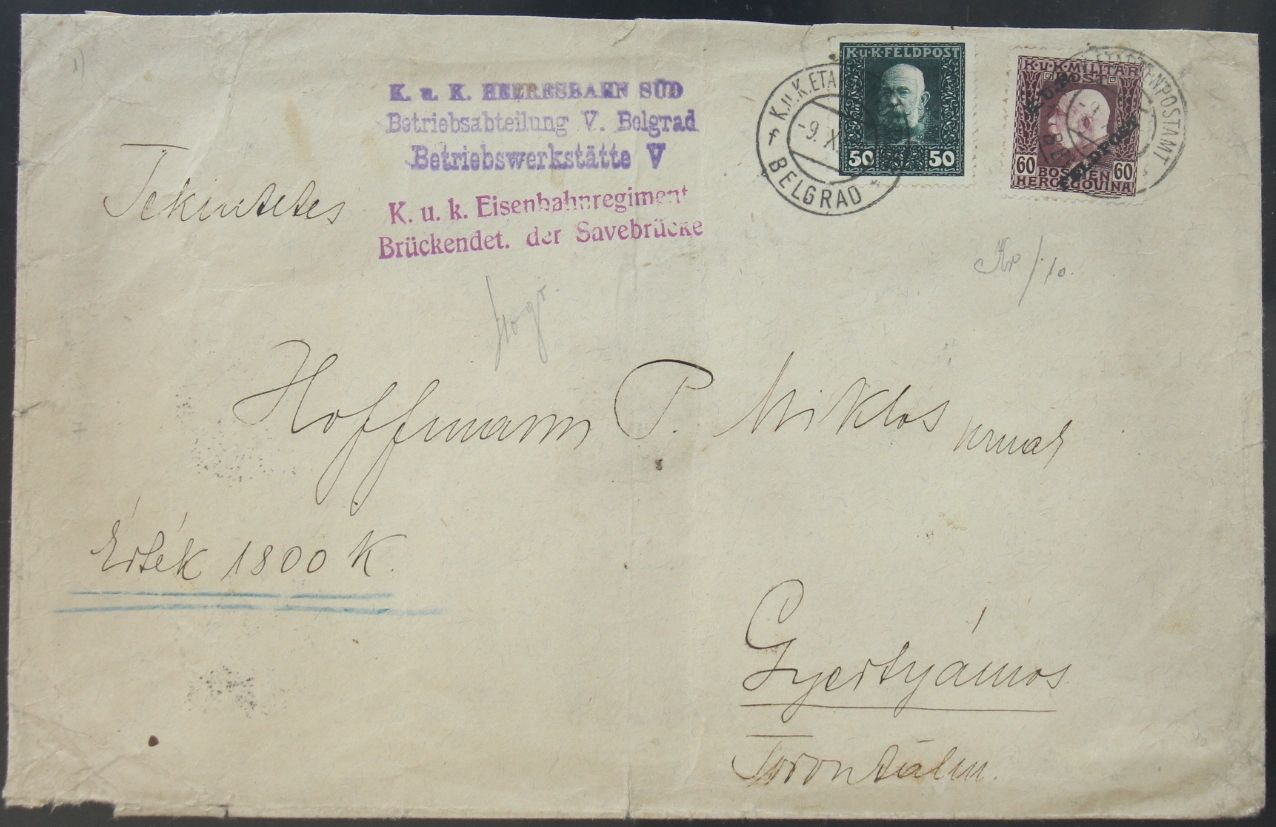 K. u. K. HEERESBAHN SÜD
Betriebsabteilung V. Belgrad
Betriebswerkstätte V
K. u. k. Eisenbahnregiment
Brückendet. der Savebrücke
K.u.K.ETA
-9. X
BELGRAD
K.u.K.FELDPOST
50 50
K.u.K.MILITÄR
POST
K.u.K.
FELDPOST
60 60
BOSNIEN
HERCEGOVINA
ENPOSTAMT
-9.
BEL
Tekintetes
Hoffmann P. Miklos urnak
Érték 1800 K.
Gyertyámos
Torontálm.